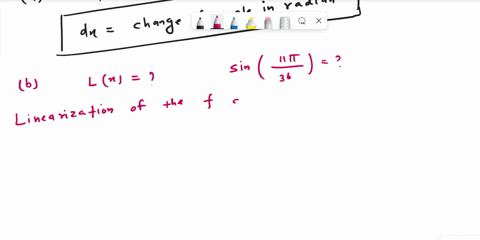 dx = change in radian
(b) L(x) = ? sin(11π/36) = ?
Linearization of the f